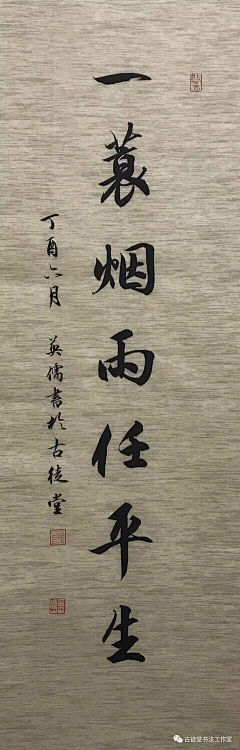 一蓑烟雨任平生
丁酉六月 英儒书於古徒堂
古徒堂书法工作室